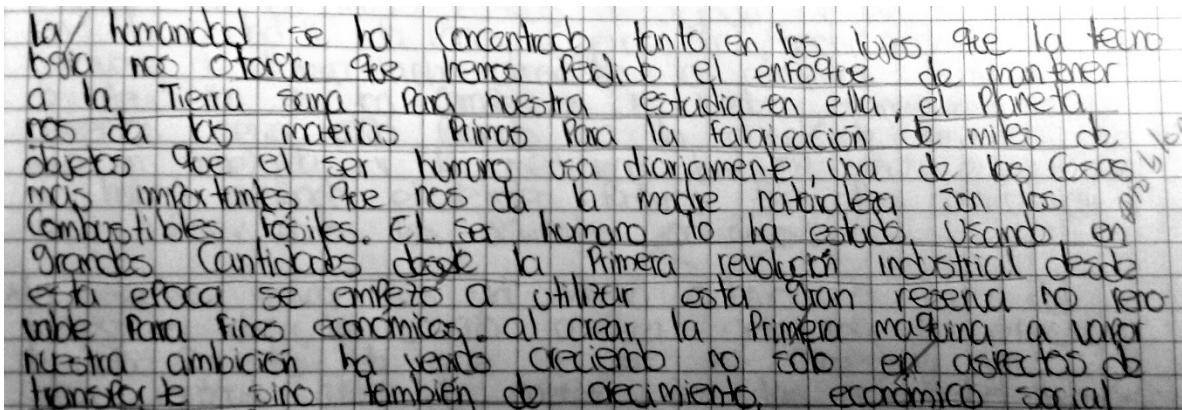 La humanidad se ha concentrado tanto en los lujos que la tecno
logía nos otorga que hemos perdido el enfoque de mantener
a la Tierra sana para nuestra estadia en ella, el planeta
nos da las materias primas para la fabricación de miles de
objetos que el ser humano usa diariamente, una de las cosas
mas importantes que nos da la madre naturaleza son los
combustibles fósiles. El ser humano lo ha estado usando en
grandes cantidades desde la primera revolución industrial desde
esta epoca se empezó a utilizar esta gran reserva no reno
vable para fines económicos. al crear la primera maquina a vapor
nuestra ambición ha venido creciendo no solo en aspectos de
transporte sino también de crecimiento económico social